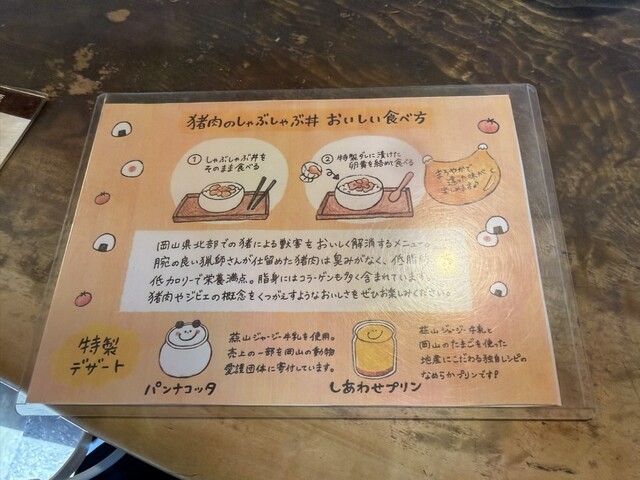 猪肉のしゃぶしゃぶ丼 おいしい食べ方
① しゃぶしゃぶ丼を
そのまま食べる
② 特製ダレに漬けた
卵黄を絡めて食べる
まろやかで
違った味が
楽しめます♪
岡山県北部での猪による獣害をおいしく解消するメニュー。
腕の良い猟師さんが仕留めた猪肉は臭みがなく、低脂肪
低カロリーで栄養満点。脂身にはコラーゲンも多く含まれています。
猪肉やジビエの概念をくつがえすようなおいしさをぜひお楽しみください。
特製
デザート
蒜山ジャージー牛乳を使用。
売上の一部を岡山の動物
愛護団体に寄付しています。
パンナコッタ
蒜山ジャージー牛乳と
岡山のたまごを使った
地産にこだわる独自レシピの
なめらかプリンです♪
しあわせプリン